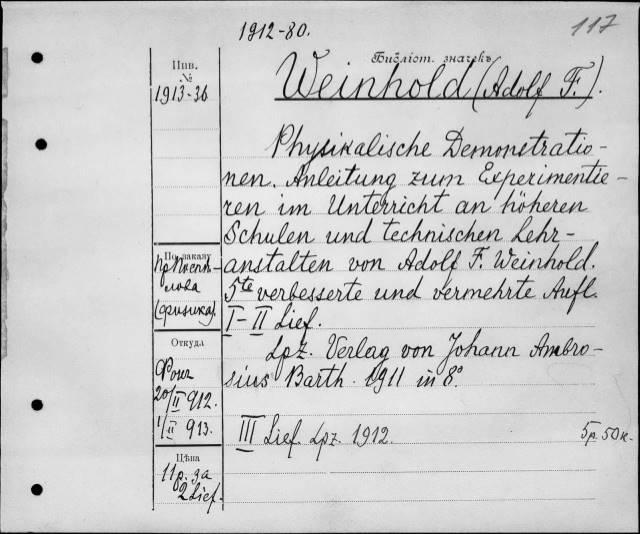 1912-80.
117
Инв.
№
1913-36
Библіот. значекъ
Weinhold (Adolf F.).
Physikalische Demonstratio-
nen. Anleitung zum Experimentie-
ren im Unterricht an höheren
Schulen und technischen Lehr-
anstalten von Adolf F. Weinhold.
5te verbesserte und vermehrte Aufl.
I-II Lief.
Lpz. Verlag von Johann Ambro-
sius Barth. 1911 in 8°
III Lief. Lpz. 1912.
5р. 50к.
По заказу
(физика).
Откуда
20/II 912.
1/II 913.
Цѣна
11р. за
2 Lief.